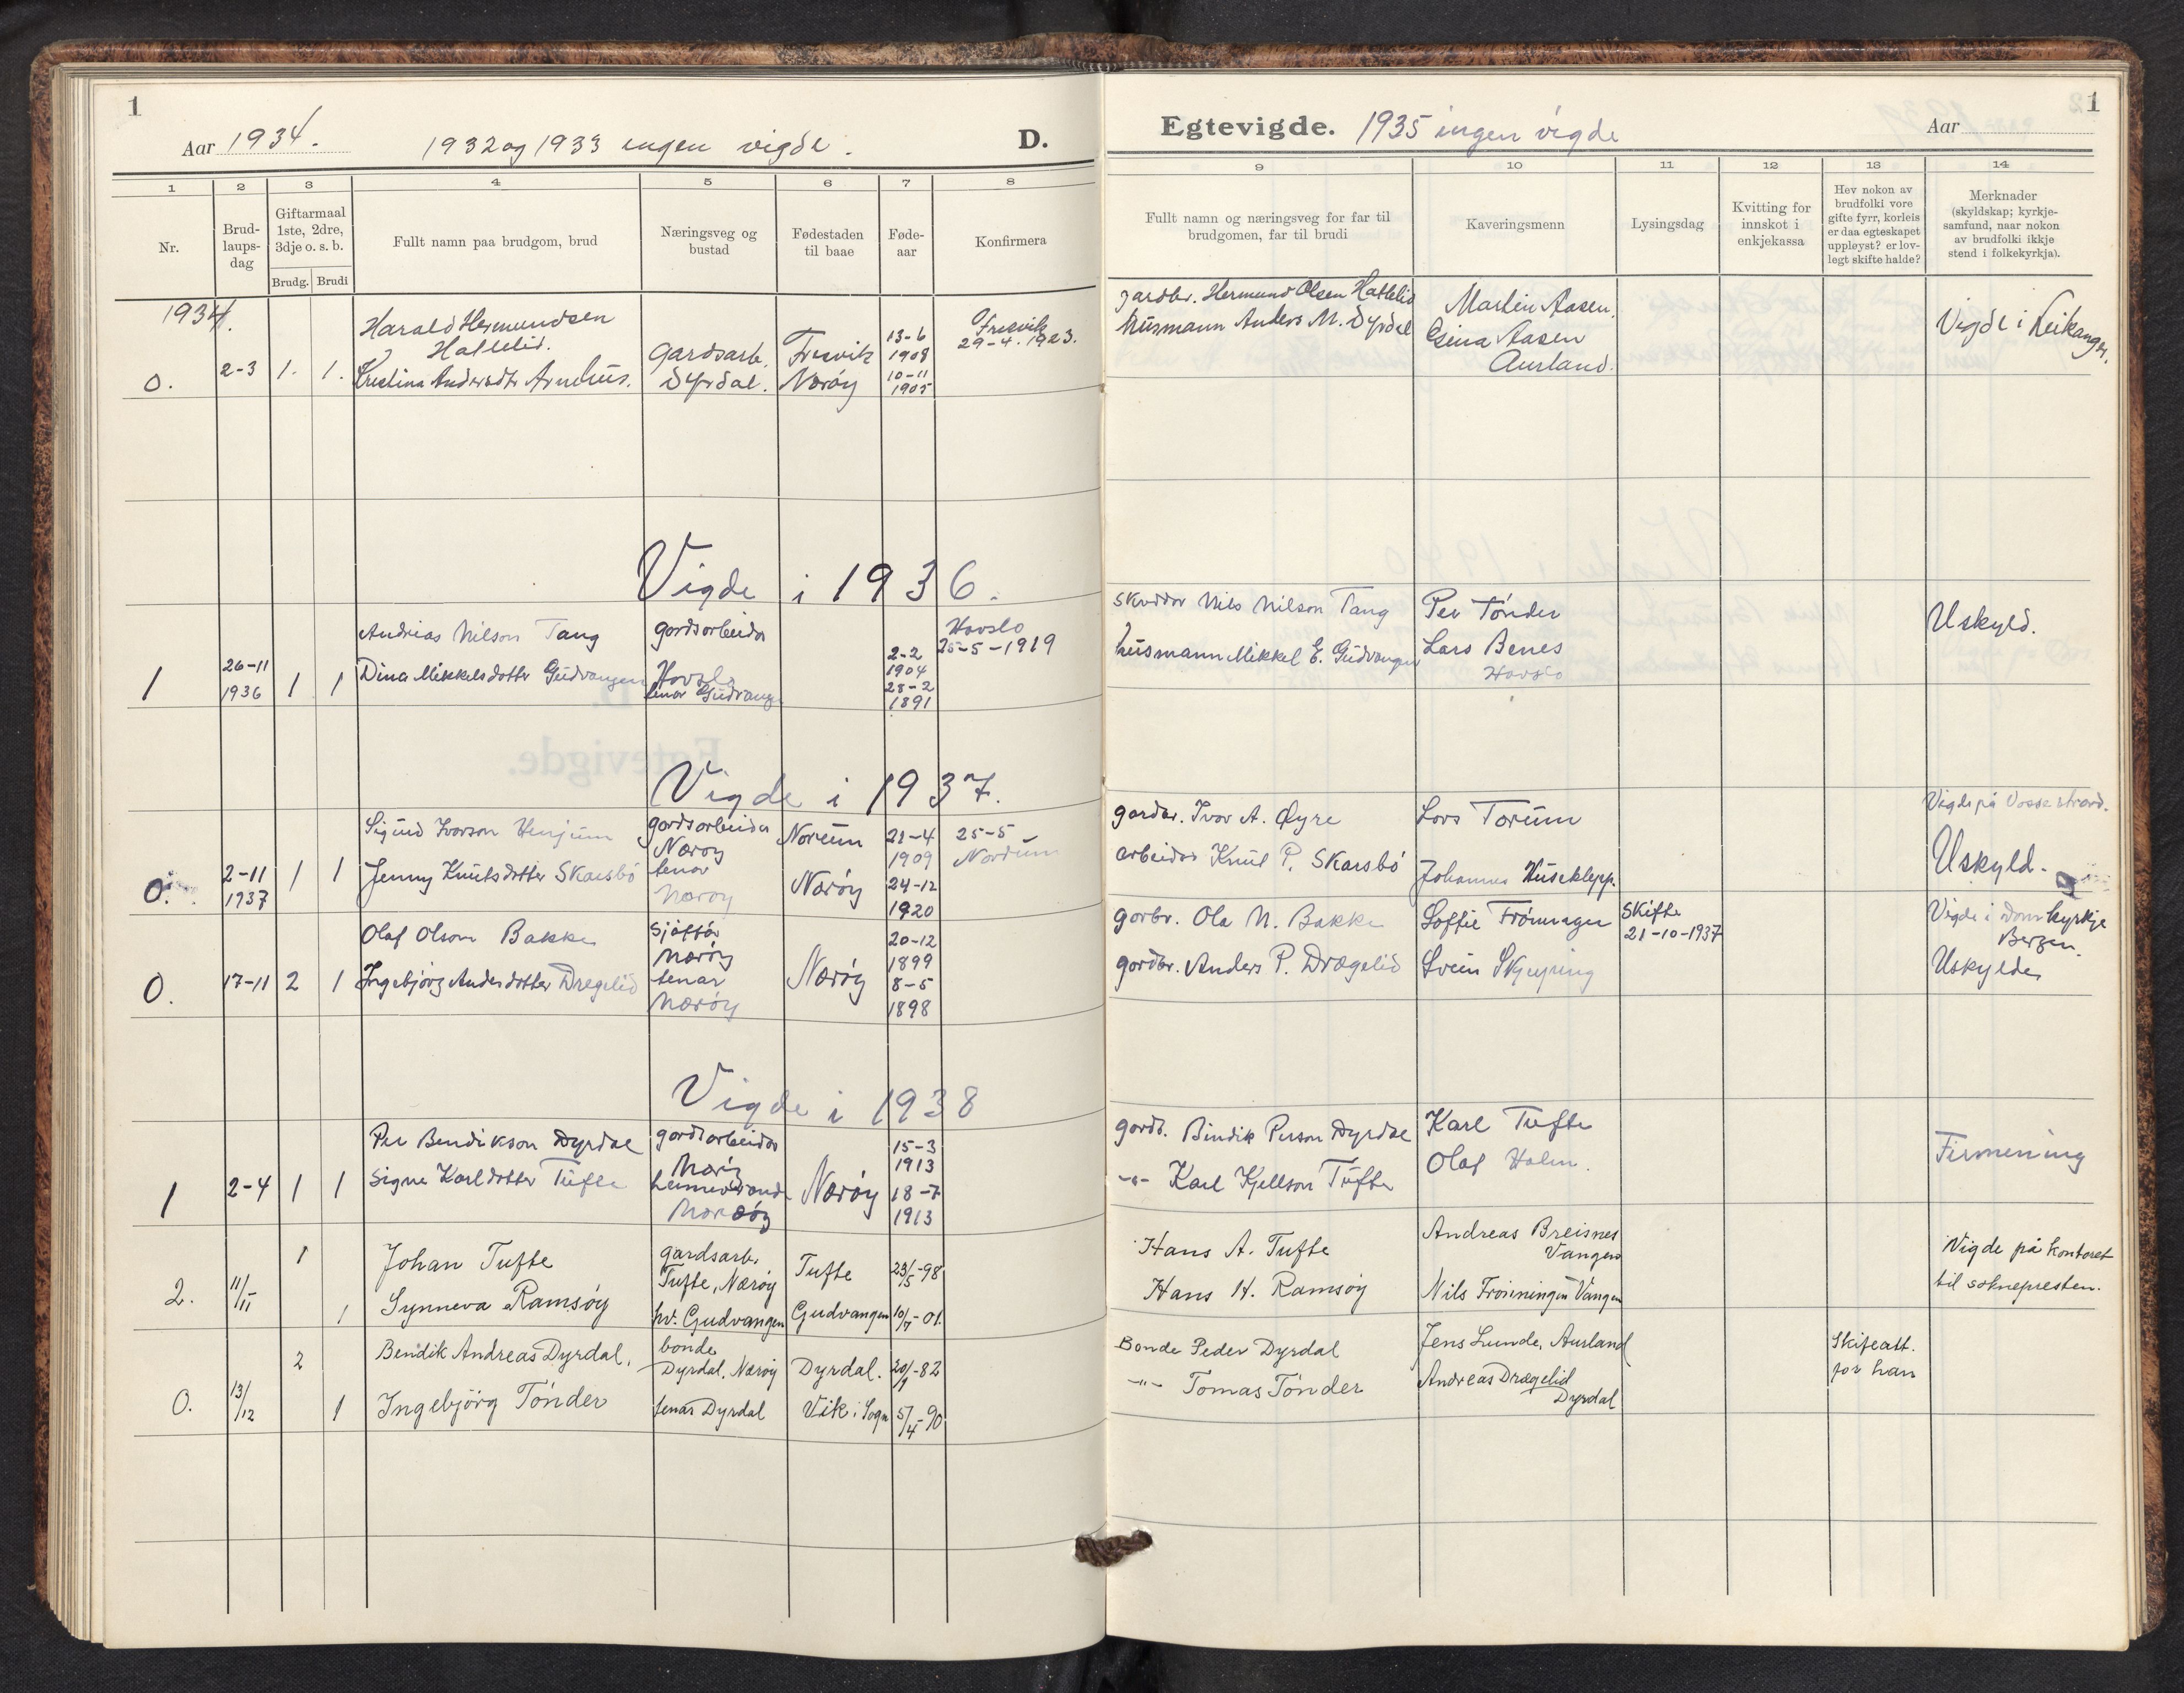 1
Aar 1934. 1932 og 1933 ingen vigde. D.
1 2 3 4 5 6 7 8
Nr.
Brud-
laups-
dag
Giftarmaal
1ste, 2dre,
3dje o. s. b.
Brudg. Brudi
Fullt namn paa brudgom, brud
Næringsveg og
bustad
Fødestaden
til baae
Føde-
aar
Konfirmera
1934.
0. 2-3 1. 1.
Harald Hermundsen
Hatlelid.
Kristina Andersdtr Arnehus.
Gardsarb.
Dyrdal.
Fresvik
Nærøy
13-6
1908
10-11
1905
Fresvik
29-4.1923.
Vigde i 1936.
1 26-11
1936 1 1
Andrias Nilson Tang
Dina Mikkelsdotter Gudvangen
gardsarbeidar
Havslo
tenar Gudvangen
2-2
1904
28-2
1891
Havslo
25-5-1919
Vigde i 1937.
0. 2-11
1937 1 1
Sigurd Ivarson Henjum
Jenny Knutsdotter Skarsbö
gardsarbeidar
Næröy
tenar
Næröy
Noreum
Næröy
21-4
1909
24-12
1920
25-5
Nordum
0. 17-11 2 1
Olaf Olson Bakke
Ingebjörg Andersdotter Dregelid
Sjåffør
Næröy
tenar
Næröy
Næröy
20-12
1899
8-5
1898
Vigde i 1938
1 2-4 1 1
Per Bendikson Dyrdal
Signe Karlsdotter Tufte
gardsarbeidar
Næröy
heimeverande
Næröy
Næröy
15-3
1913
18-7
1913
2. 11/11 1 1
Johan Tufte
Synneva Ramsøy
gardsarb.
Tufte, Nærøy
hv. Gudvangen
Tufte
Gudvangen
23/5-98
10/7-01.
0. 13/12 2 1
Bendik Andreas Dyrdal.
Ingebjörg Tönder
bonde
Dyrdal, Nærøy
tenar Dyrdal
Dyrdal.
Vik i Sogn
20/9-82
5/4-90
Egtevigde. 1935 ingen vigde Aar
1
9 10 11 12 13 14
Fullt namn og næringsveg for far til
brudgomen, far til brudi
Kaveringsmenn
Lysingsdag
Kvitting for
innskot i
enkjekassa
Hev nokon av
brudfolki vore
gifte fyrr, korleis
er daa egteskapet
uppløyst? er lov-
legt skifte halde?
Merknader
(skyldskap; kyrkje-
samfund, naar nokon
av brudfolki ikkje
stend i folkekyrkja).
gardbr. Hermund Olsen Hatlelid
husmann Anders M. Dyrdal
Martin Aasen.
Gina Aasen
Aurland.
Vigde i Leikanger.
Skreddar Nils Nilson Tang
husmann Mikkel E. Gudvangen
Per Tönder
Lars Benes
Havslo
Uskyld.
gardbr. Ivar A. Øyre
arbeidar Knut P. Skarsbö
Lars Torum
Johannes Huseklepp.
Vigde på Vossestrand.
Uskyld.
garbr. Ola N. Bakke
gardbr. Anders P. Drægelid
Loftie Fröninger
Svein Skjerping
Skifte
21-10-1937
Vigde i Domkyrkje
Bergen.
Uskylde
gardb. Bendik Person Dyrdal
-"- Karl Kjellson Tufte
Karl Tufte
Olaf Holm.
Firmening
Hans A. Tufte
Hans H. Ramsøy
Andreas Breisnes
Vangen
Nils Frönningen Vangen
Vigde på kontoret
til soknepresten.
Bonde Peder Dyrdal
-"- Tomas Tönder
Jens Lunde, Aurland
Andreas Drægelid
Dyrdal
Skifteatt.
for han